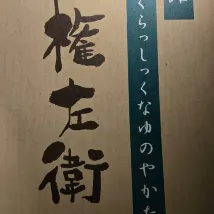 くらっしっくなゆのやかた
権左衛